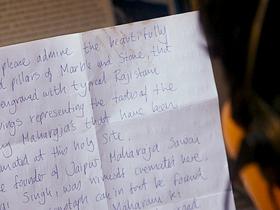 please admire the beautifully
d pillars of Marble and Stone, that
engraved with typical Rajistani
ings representing the tastes of the
ny Maharajas that have been
mated at this holy site.
e founder of Jaipur, Maharaja Sawai
Singh, was himself cremated here.
notaph can in fact be found
Maharani ki